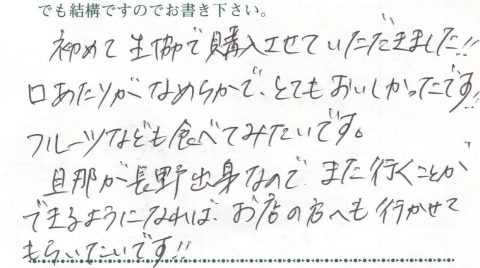 でも結構ですのでお書き下さい。
初めて生協で購入させていただきました!!
口あたりがなめらかで、とてもおいしかったです!!
フルーツなども食べてみたいです。
旦那が長野出身なので、また行くことが
できるようになれば、お店の方へも行かせて
もらいたいです!!